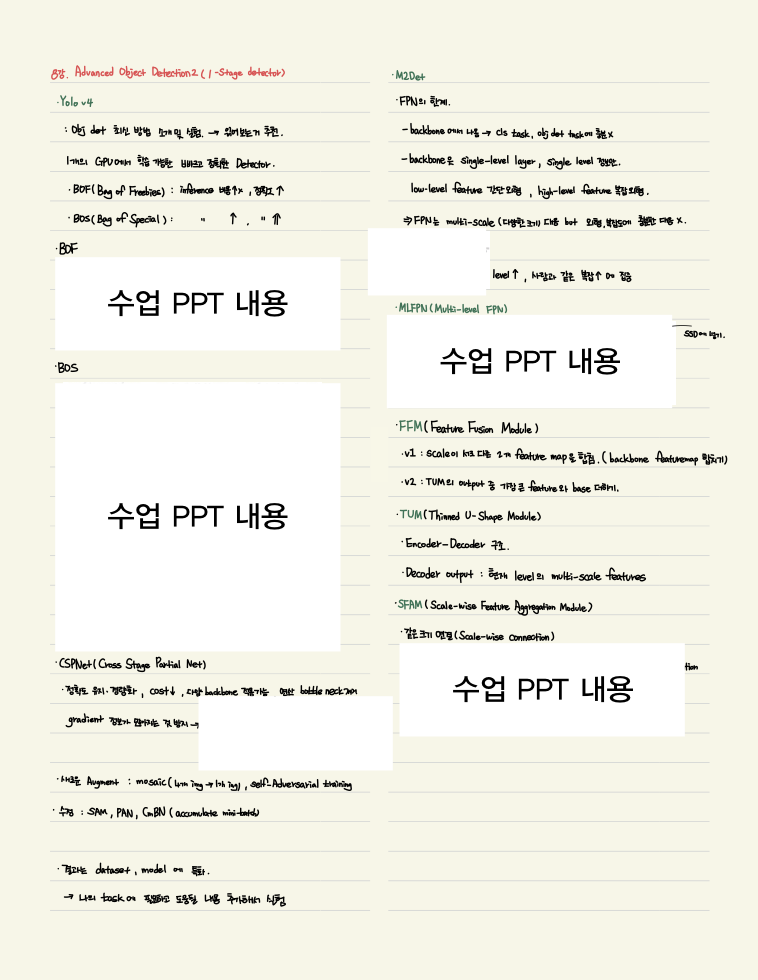 8강. Advanced Object Detection2 (1-Stage detector)
·Yolo v4
: Obj det 최신 방법 소개 및 실험. → 읽어보는거 추천.
1개의 GPU에서 학습 가능한 빠르고 정확한 Detector.
·BOF(Bag of Freebies) : inference 비용↑x, 정확도↑
·BOS(Bag of Special) : " ↑, " ⇑
·BOF
수업 PPT 내용
·BOS
수업 PPT 내용
·CSPNet(Cross Stage Partial Net)
·정확도 유지·경량화, cost↓, 다양 backbone 적용가능, 연산 bottle neck 제거
gradient 정보가 많아지는 것 방지→
·새로운 Augment : mosaic(4개 img→1개 img), self-Adversarial training
·수정 : SAM, PAN, CmBN (accumulate mini-batch)
·결과는 dataset, model에 특화.
→ 나의 task에 필요하고 도움될 내용 추가해서 실험
·M2Det
·FPN의 한계.
-backbone에서 나옴 → cls task, obj det task에 충분x
-backbone은 single-level layer, single level 정보만.
low-level feature 간단 외형, high-level feature 복잡 외형.
⇒ FPN는 multi-scale (다양한 크기) 대응 but 외형,복잡도에 충분한 대응 x.
level↑, 사람과 같은 복잡↑에 집중
·MLFPN(Multi-level FPN)
수업 PPT 내용
·FFM(Feature Fusion Module)
·v1 : Scale이 서로 다른 2개 feature map을 합침. (backbone featuremap 합치기)
·v2 : TUM의 output 중 가장 큰 feature와 base 더하기.
·TUM(Thinned U-Shape Module)
·Encoder-Decoder 구조.
·Decoder output : 현재 level의 multi-scale features
·SFAM(Scale-wise Feature Aggregation Module)
·같은크기 연결(Scale-wise connection)
수업 PPT 내용